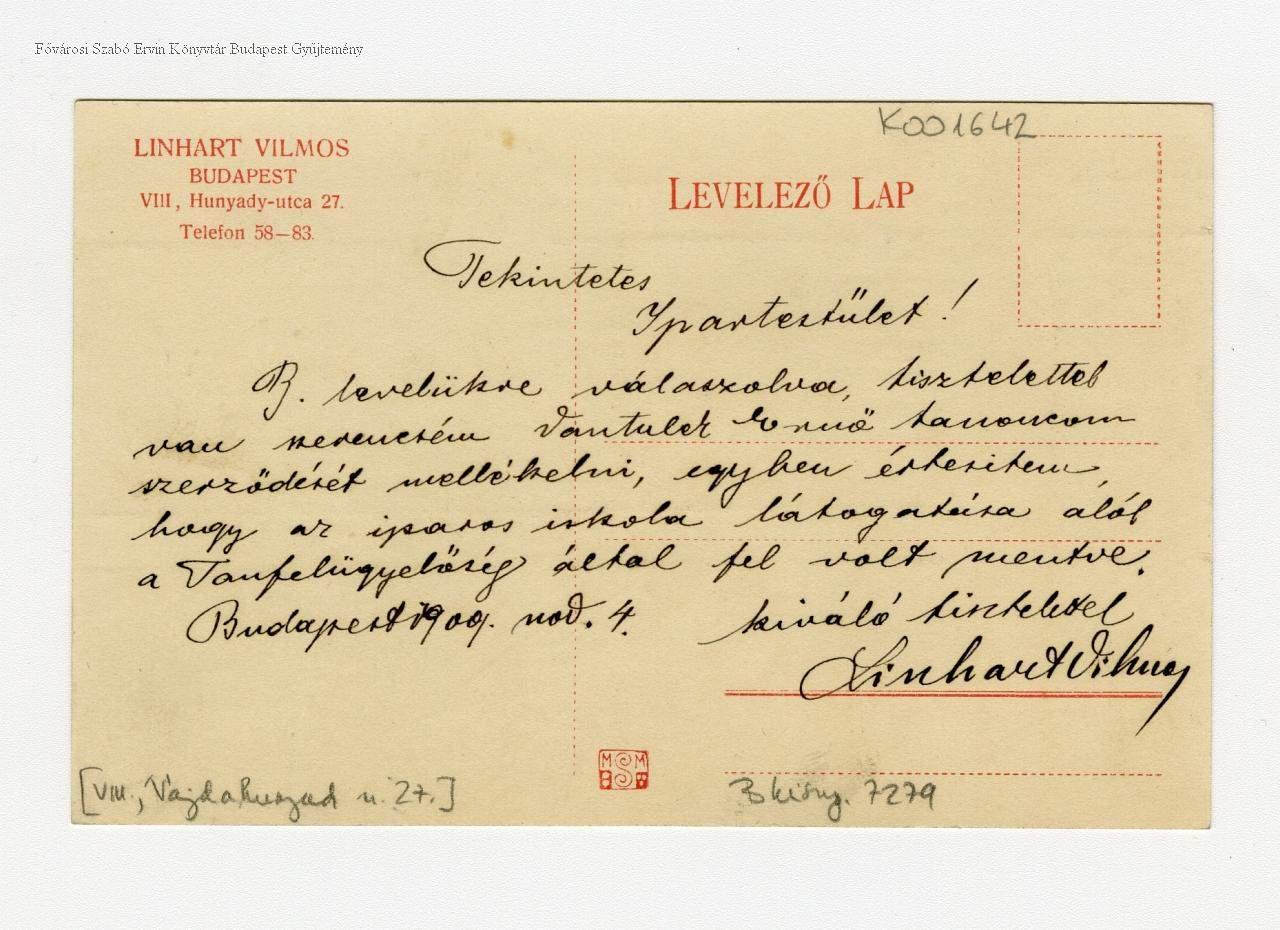 Fővárosi Szabó Ervin Könyvtár Budapest Gyűjtemény
K001642
LINHART VILMOS
BUDAPEST
VIII, Hunyady-utca 27.
Telefon 58—83.
LEVELEZŐ LAP
Tekintetes
Ipartestület!
B. levelükre válaszolva, tisztelettel
van szerencsém Ernő tanoncom
szerződését mellékelni, egyben értesitem
hogy az iparos iskola látogatása alól
a Tanfelügyelőség által fel volt mentve.
Budapest 1909. nov. 4. kiváló tisztelettel
Linhart Vilmos
MSM
[VIII., Vajdahunyad u. 27.]
7279